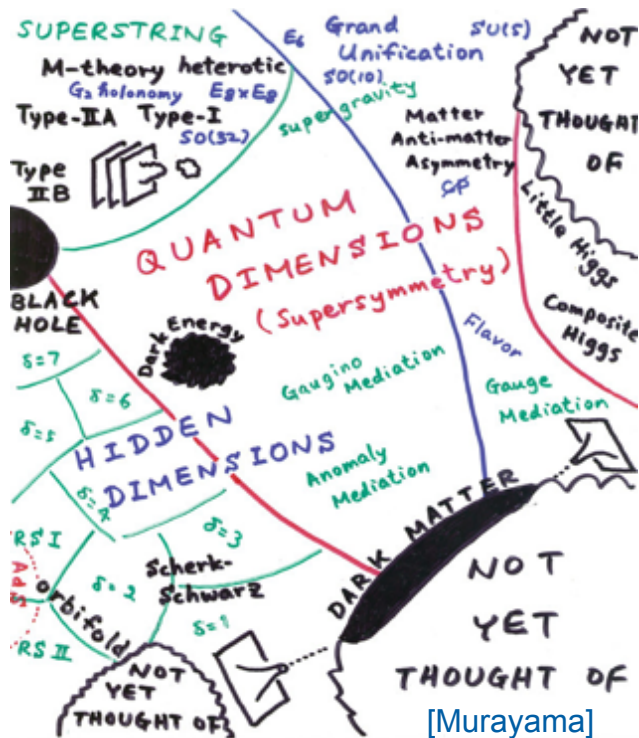 SUPERSTRING
M-theory heterotic
G₂ holonomy E₈×E₈
Type-IIA Type-I
SO(32)
Type
IIB
E₆ Grand SU(5)
Unification
SO(10)
supergravity
Matter
Anti-matter
Asymmetry
CP
NOT
YET
THOUGHT
OF
Little Higgs
Composite
Higgs
QUANTUM
DIMENSIONS
(Supersymmetry)
BLACK
HOLE
Dark Energy
Flavor
Gaugino
Mediation
Gauge
Mediation
Anomaly
Mediation
δ=7
δ=6
δ=5
HIDDEN
DIMENSIONS
δ=4
δ=3
RS I
AdS
δ=2
Scherk-
Schwarz
orbifold
δ=1
RS II
DARK MATTER
NOT
YET
THOUGHT OF
NOT
YET
THOUGHT OF
[Murayama]